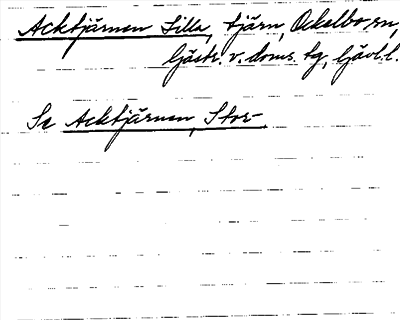 Acktjärnen Lilla, tjärn, Ockelbo sn,
Gästr. v. doms. tg, Gävl. l.
Se Acktjärnen, Stor-